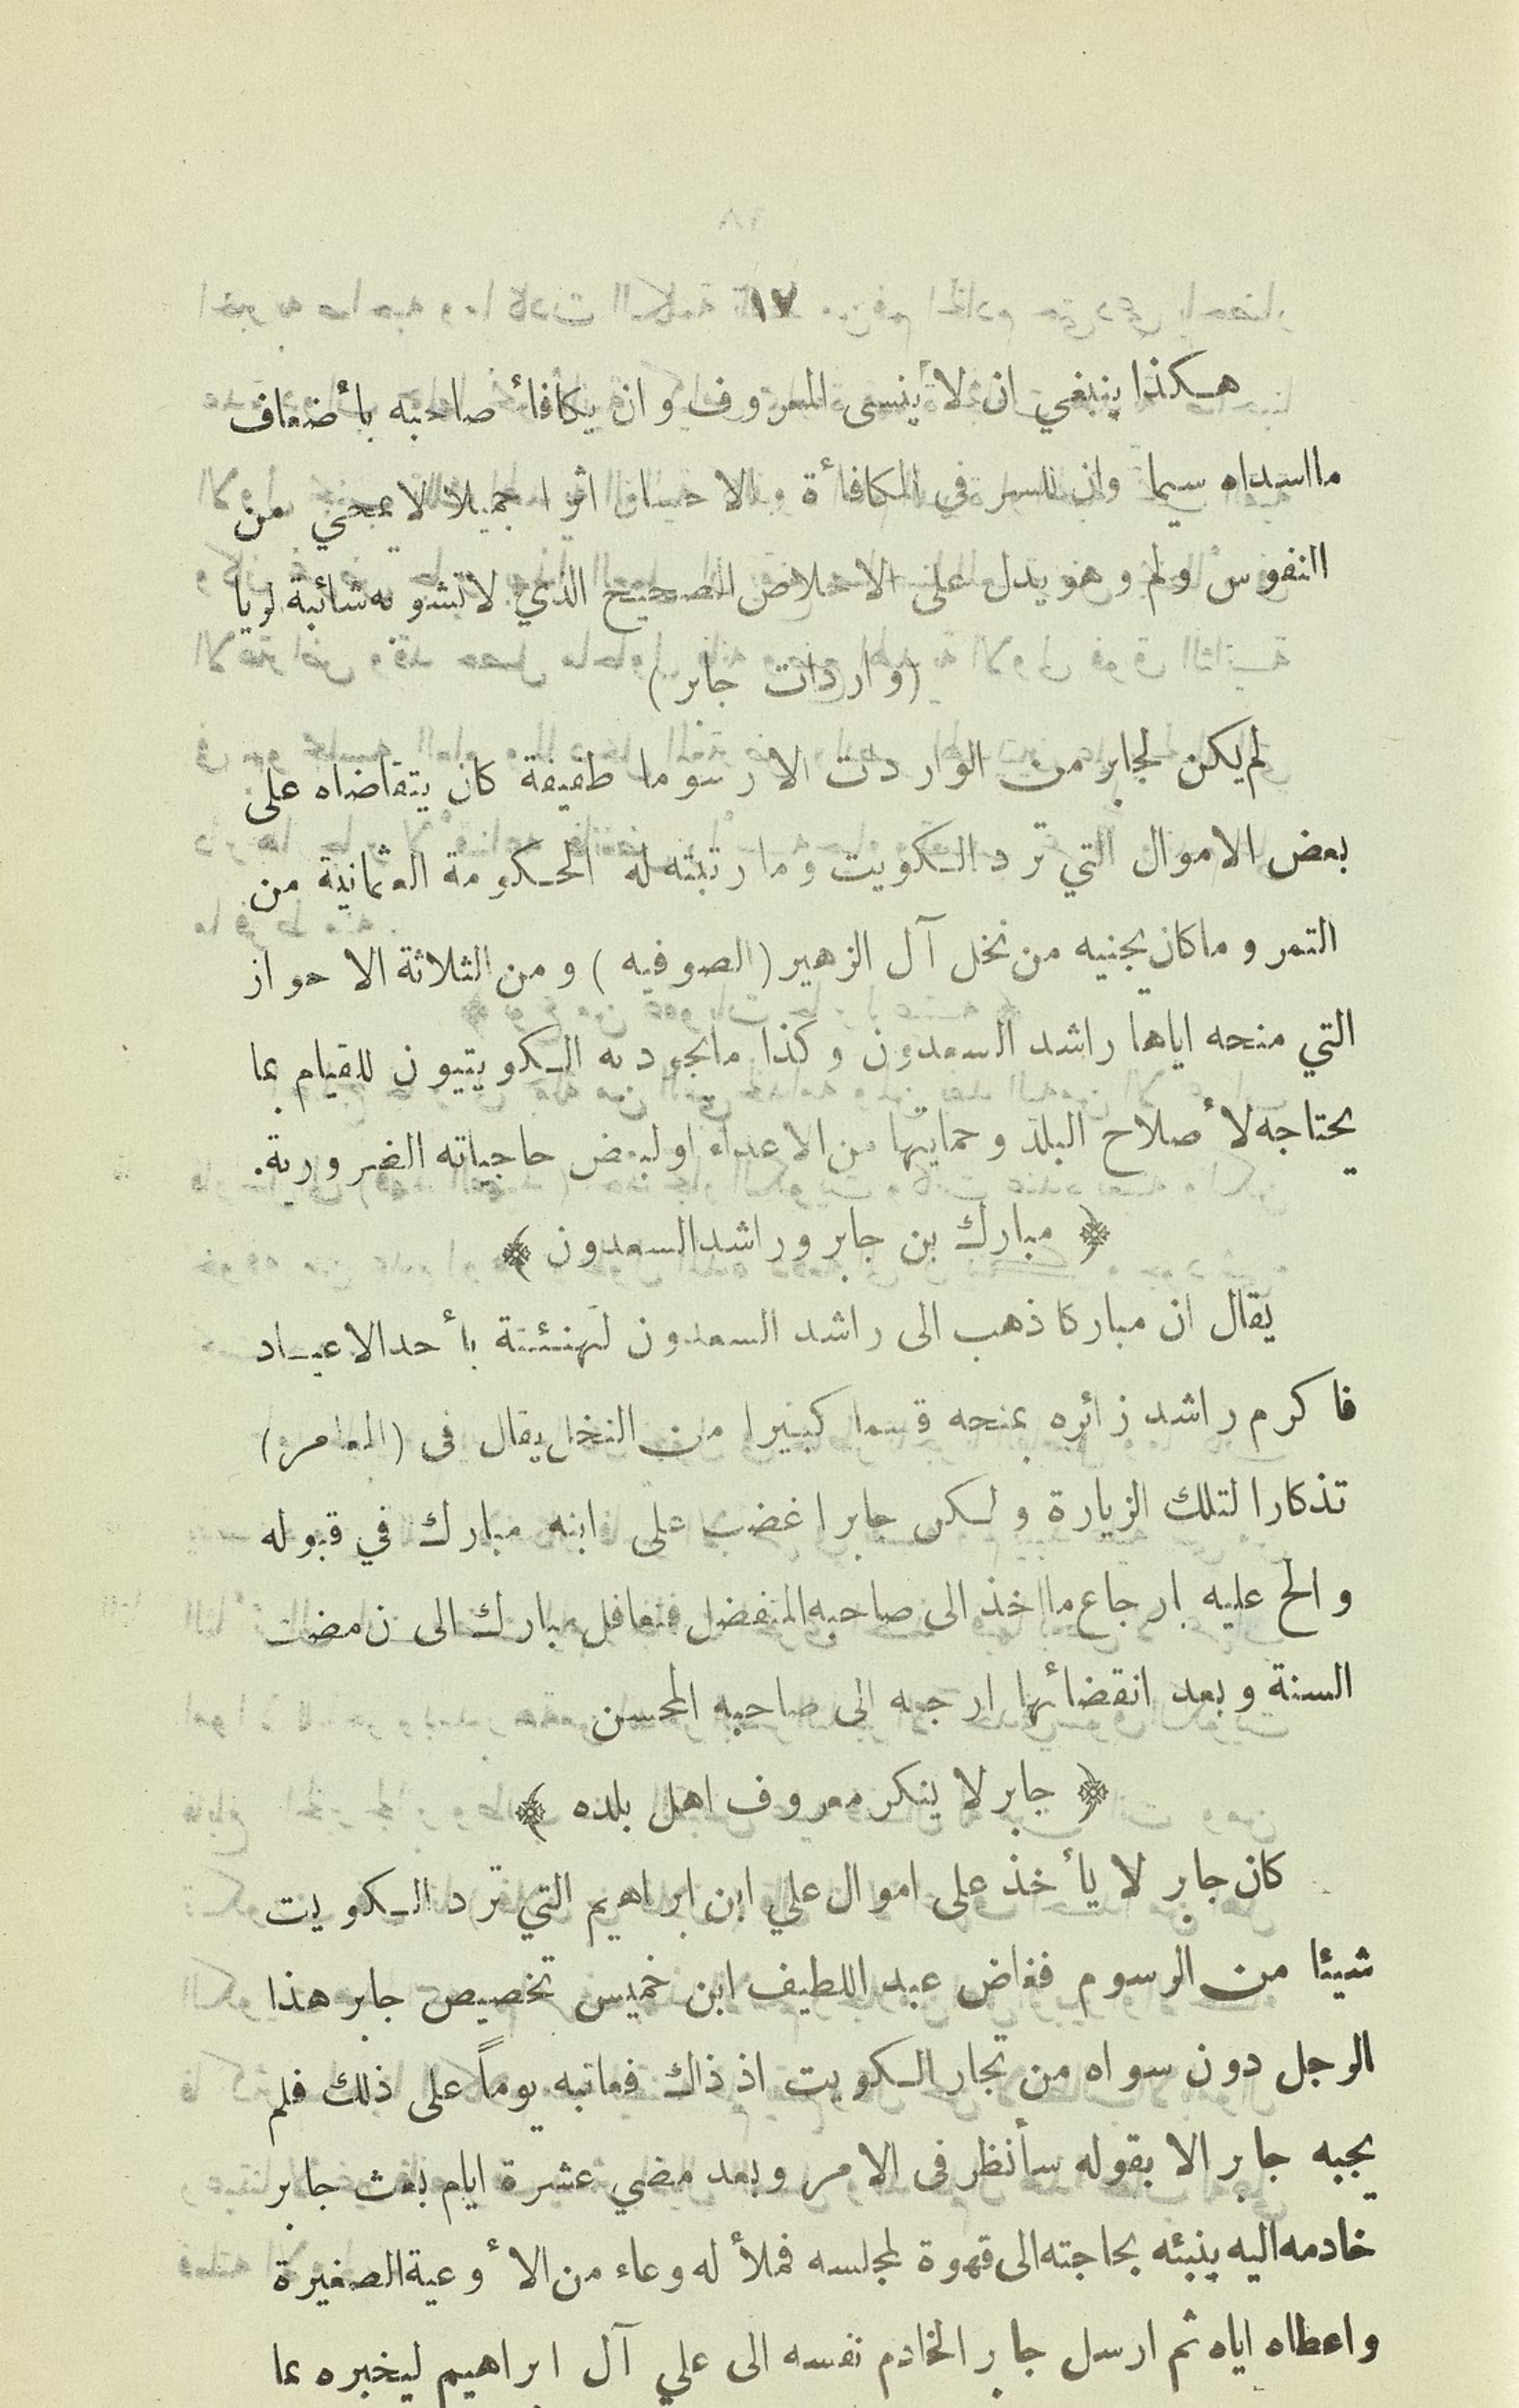 ١٧
هكذا ينبغي ان لا ينسى المعروف وان يكافأ صاحبه بأضعاف
مااسداه سيما وان للسر في المكافأة والاحسان اثرا جميلا لا يمحي من
النفوس ولم وهو يدل على الاخلاص الصحيح الذي لا تشوبه شائبة لريا
(واردات جابر)
لم يكن لجابر من الواردت الا رسوما طفيفة كان يتقاضاه على
بعض الاموال التي ترد الكويت وما رتبته له الحكومة العثمانية من
التمر وماكان يجنيه من نخل آل الزهير (الصوفيه) ومن الثلاثة الاحواز
التي منحه اياها راشد السعدون وكذا مايجود به الكويتيون للقيام بما
يحتاجه لأصلاح البلد وحمايتها من الاعداء او لبعض حاجياته الضرورية.
﴿ مبارك بن جابر وراشد السعدون ﴾
يقال ان مباركا ذهب الى راشد السعدون لتهنئتة بأحد الاعياد
فاكرم راشد زائره بمنحه قسما كبيرا من النخل يقال في (المعامر)
تذكارا لتلك الزيارة ولكن جابرا غضب على ابنه مبارك في قبوله
والح عليه ارجاع مااخذ الى صاحبه المتفضل فتغافل مبارك الى ن مضت
السنة وبعد انقضائها ارجعه الى صاحبه المحسن
﴿ جابر لا ينكر معروف اهل بلده ﴾
كان جابر لا يأخذ على اموال علي ابن ابراهيم التي ترد الكويت
شيئا من الرسوم فغاض عبد اللطيف ابن خميس تخصيص جابر هذا
الرجل دون سواه من تجار الكويت اذ ذاك فعاتبه يوماً على ذلك فلم
يجبه جابر الا بقوله سأنظر في الامر وبعد مضي عشرة ايام بعث جابر
خادمه اليه ينبئه بحاجته الى قهوة لمجلسه فملأ له وعاء من الأوعية الصغيرة
واعطاه اياه ثم ارسل جابر الخادم نفسه الى علي آل ابراهيم ليخبره بما